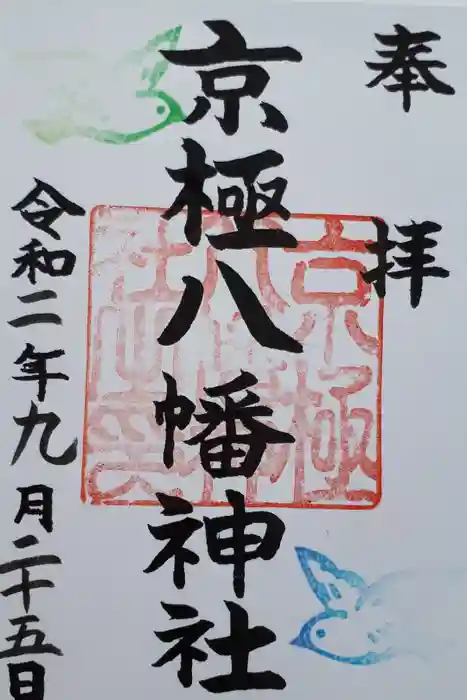 奉拝
京極八幡神社
令和二年九月二十五日
京極
八幡神
社之印